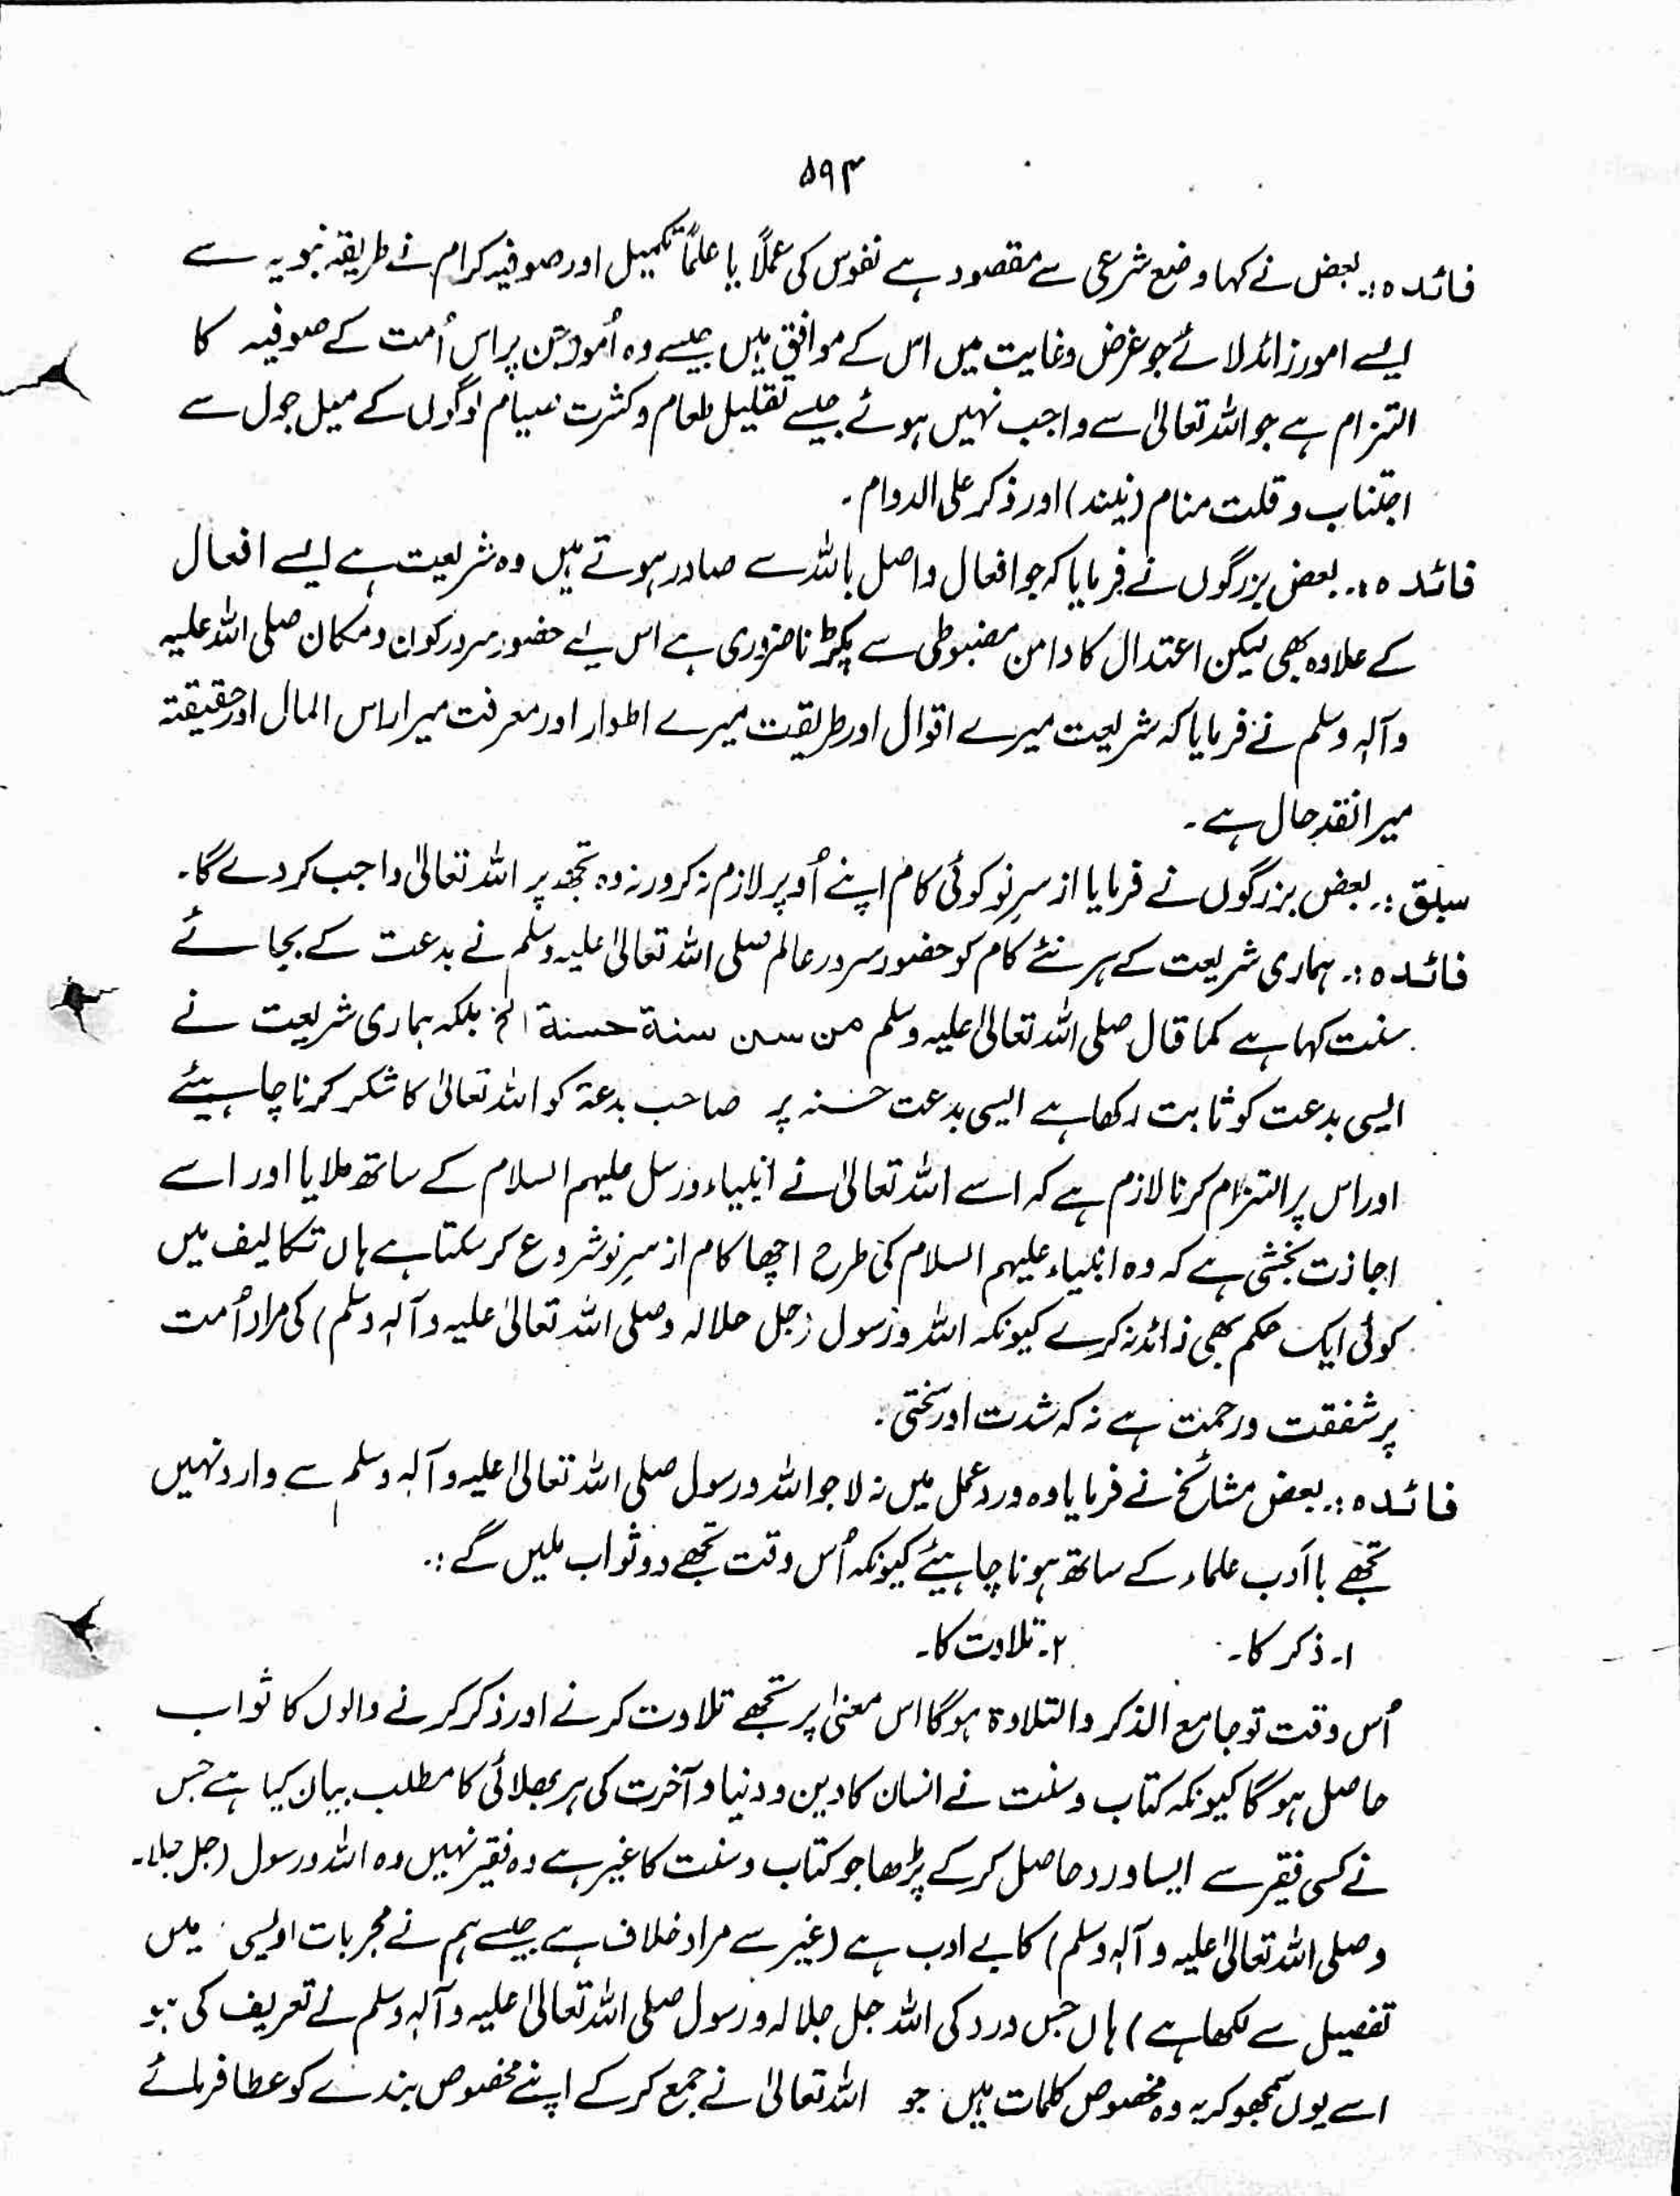 ۵۹۴
فائدہ:۔ بعض نے کہا وضع شرعی سے مقصود ہے نفوس کی عملاً یا علماً تکمیل اور صوفیہ کرام نے طریقۂ نبویہ سے
ایسے امور زائد لائے جو غرض و غایت میں اس کے موافق ہیں جیسے وہ اُمور جن پر اس اُمت کے صوفیہ کا
التزام ہے جو اللہ تعالیٰ سے واجب نہیں ہوئے جیسے تقلیل طعام و کثرت صیام لوگوں کے میل جول سے
اجتناب و قلت منام (نیند) اور ذکر علی الدوام۔
فائدہ:۔ بعض بزرگوں نے فرمایا کہ جو افعال واصل باللہ سے صادر ہوتے ہیں وہ شریعت ہے ایسے افعال
کے علاوہ بھی لیکن اعتدال کا دامن مضبوطی سے پکڑنا ضروری ہے اس لیے حضور سرور کون و مکان صلی اللہ علیہ
وآلہٖ وسلم نے فرمایا کہ شریعت میرے اقوال اور طریقت میرے اطوار اور معرفت میرا راس المال اور حقیقتہ
میرا نقدِ حال ہے۔
سبق:۔ بعض بزرگوں نے فرمایا از سرِ نو کوئی کام اپنے اُوپر لازم نہ کرو ورنہ وہ تجھ پر اللہ تعالیٰ واجب کر دے گا۔
فائدہ:۔ ہماری شریعت کے ہر نئے کام کو حضور سرور عالم صلی اللہ تعالیٰ علیہ وسلم نے بدعت کے بجائے
سنت کہا ہے کما قال صلی اللہ تعالیٰ علیہ وسلم من سن سنة حسنة الخ بلکہ ہماری شریعت نے
ایسی بدعت کو ثابت رکھا ہے ایسی بدعت حسنہ پر صاحب بدعة کو اللہ تعالیٰ کا شکر کرنا چاہیئے
اور اس پر التزام کرنا لازم ہے کہ اسے اللہ تعالیٰ نے انبیاء ورسل علیہم السلام کے ساتھ ملایا اور اسے
اجازت بخشی ہے کہ وہ انبیاء علیہم السلام کی طرح اچھا کام از سرِ نو شروع کر سکتا ہے ہاں تکالیف میں
کوئی ایک حکم بھی زائد نہ کرے کیونکہ اللہ و رسول (جل جلالہ وصلی اللہ تعالیٰ علیہ وآلہٖ وسلم) کی مراد اُمت
پر شفقت ورحمت ہے نہ کہ شدت اور سختی۔
فائدہ:۔ بعض مشائخ نے فرمایا وہ ورد عمل میں نہ لا جو اللہ و رسول صلی اللہ تعالیٰ علیہ وآلہٖ وسلم سے وارد نہیں
تجھے باادب علماء کے ساتھ ہونا چاہیئے کیونکہ اُس وقت تجھے دو ثواب ملیں گے:۔
۱۔ ذکر کا۔ ۲۔ تلاوت کا۔
اُس وقت تو جامع الذکر والتلاوة ہوگا اس معنیٰ پر تجھے تلاوت کرنے اور ذکر کرنے والوں کا ثواب
حاصل ہوگا کیونکہ کتاب و سنت نے انسان کا دین و دنیا و آخرت کی ہر بھلائی کا مطلب بیان کیا ہے جس
نے کسی فقیر سے ایسا ورد حاصل کر کے پڑھا جو کتاب و سنت کا غیر ہے وہ فقیر نہیں وہ اللہ و رسول (جل جلالہ۔
وصلی اللہ تعالیٰ علیہ وآلہٖ وسلم) کا بے ادب ہے (غیر سے مراد خلاف ہے جیسے ہم نے مجربات اویسی میں
تفصیل سے لکھا ہے) ہاں جس ورد کی اللہ جل جلالہ ورسول صلی اللہ تعالیٰ علیہ وآلہٖ وسلم نے تعریف کی ہو
اسے یوں سمجھو کہ یہ وہ مخصوص کلمات ہیں جو اللہ تعالیٰ نے جمع کر کے اپنے مخصوص بندے کو عطا فرمائے